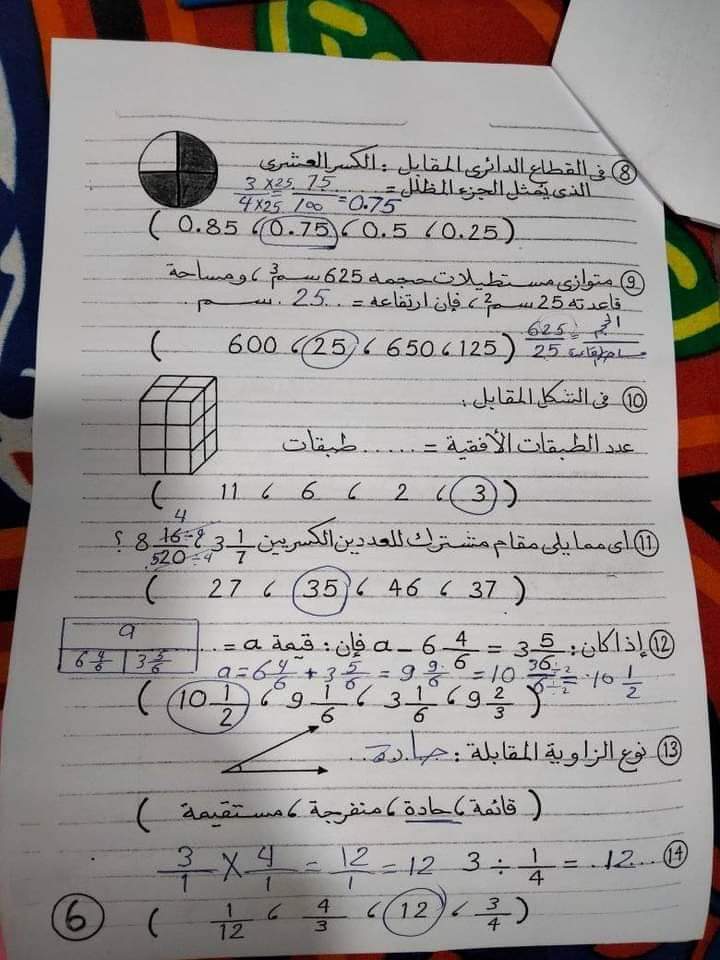 ⑧ فى القطاع الدائرى المقابل : الكسر العشرى
الذى يمثل الجزء المظلل = ......
3 ×25 / 4 ×25 = 75 / 100 = 0.75
( 0.25 ، 0.5 ، 0.75 ، 0.85 )
⑨ متوازى مستطيلات حجمه 625 سم³ ، ومساحة
قاعدته 25 سم² ، فإن ارتفاعه = .. 25 . سم .
625 / 25
( 125 ، 650 ، 25 ، 600 )
⑩ فى الشكل المقابل :
عدد الطبقات الأفقية = ...... طبقات
( 3 ، 2 ، 6 ، 11 )
⑪ اى مما يلى مقام مشترك للعددين الكسريين 3 1/7 ، 8 16/20 ؟
4
5
÷4
( 37 ، 46 ، 35 ، 27 )
⑫ إذا كان : a − 6 4/6 = 3 5/6 فإن : قيمة a = ...
a
6 4/6 3 5/6
a = 6 4/6 + 3 5/6 = 9 9/6 = 10 3/6 ÷ = 10 1/2
( 9 2/3 ، 3 1/6 ، 9 1/6 ، 10 1/2 )
⑬ نوع الزاوية المقابلة : حادة ..
( قائمة ، حادة ، منفرجة ، مستقيمة )
⑭ 3 ÷ 1/4 = .12....
3/1 × 4/1 = 12/1 = 12
( 3/4 ، 12 ، 4/3 ، 1/12 )
6